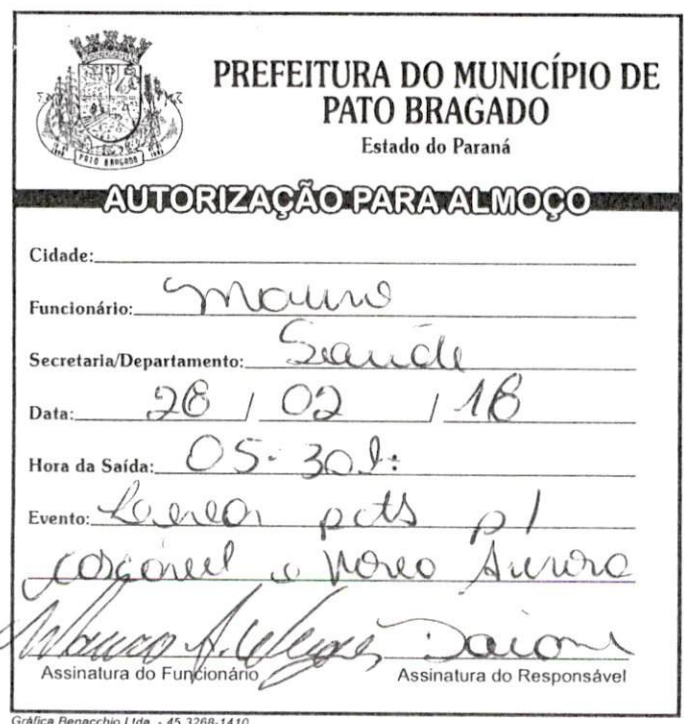 PREFEITURA DO MUNICÍPIO DE
PATO BRAGADO
Estado do Paraná
PATO BRAGADO
AUTORIZAÇÃO PARA ALMOÇO
Cidade:
Funcionário: Mauro
Secretaria/Departamento: Saúde
Data: 28 / 02 / 18
Hora da Saída: 05:30h:
Evento: Levar pcts p/
cascavel e Nova Aurora
Mauro A.
Daiane
Assinatura do Funcionário Assinatura do Responsável
Gráfica Benacchio Ltda. - 45 3268-1410